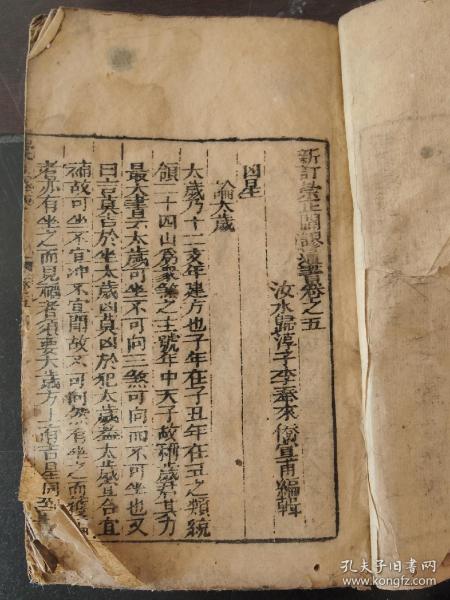 新訂崇正闢謬通書卷之五
汝水歸淳子李奉來儐宣甫編輯
凶星
論太歲
太歲乃十二支年建方也子年在子丑年在丑之類統
領二十四山為眾煞之主號年中天子故稱歲君其力
最大書曰太歲可坐不可向三煞可向而不可坐也又
曰吉莫吉於坐太歲凶莫凶於犯太歲蓋太歲宜合宜
補故可坐不宜沖不宜開故又可向然有坐之而獲
者亦有坐之而見禍者須要太歲方上有吉星同到
孔夫子旧书网
www.kongfz.com